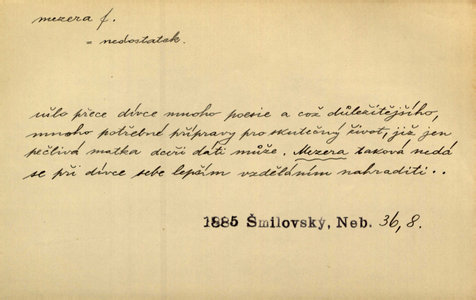 mezera f.
= nedostatek.
ušlo přece dívce mnoho poesie a což důležitějšího,
mnoho potřebné přípravy pro skutečný život, již jen
pečlivá matka dceři dáti může. Mezera taková nedá
se při dívce sebe lepším vzděláním nahraditi..
1885 Šmilovský, Neb. 36, 8.